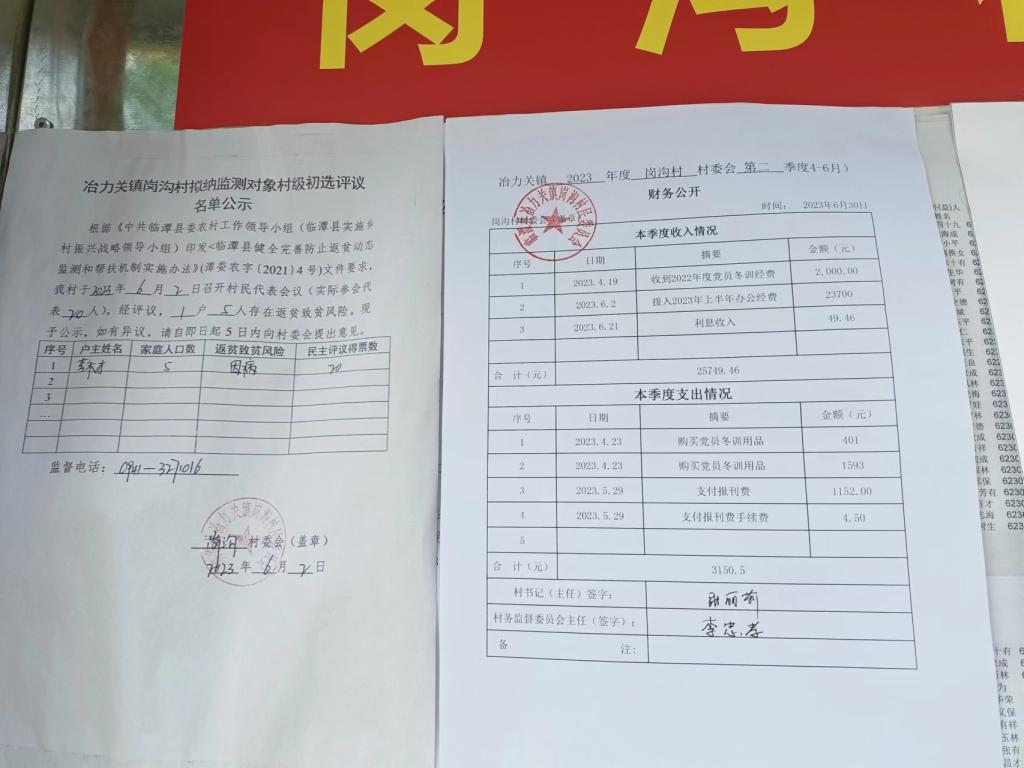 岗沟
冶力关镇岗沟村拟纳监测对象村级初选评议
名单公示
根据《中共临潭县委农村工作领导小组（临潭县实施乡
村振兴战略领导小组）印发<临潭县健全完善防止返贫动态
监测和帮扶机制实施办法》(潭委农字〔2021〕4号)文件要求，
我村于2023年6月2日召开村民代表会议（实际参会代
表20人）。经评议，1户5人存在返贫致贫风险。现
予公示，如有异议，请自即日起5日内向村委会提出意见。
序号 户主姓名 家庭人口数 返贫致贫风险 民主评议得票数
1 5 因病 20
2
3
...
监督电话：0941—3271016
岗沟 村委会（盖章）
2023年6月2日
冶力关镇 2023 年度 岗沟村 村委会 第二 季度4-6月）
财务公开
时间： 2023年6月30日
本季度收入情况
序号 日期 摘要 金额（元）
1 2023.4.19 收到2022年度党员冬训经费 2,000.00
2 2023.6.2 拨入2023年上半年办公经费 23700
3 2023.6.21 利息收入 49.46
合 计（元） 25749.46
本季度支出情况
序号 日期 摘要 金额（元）
1 2023.4.23 购买党员冬训用品 401
2 2023.4.23 购买党员冬训用品 1593
3 2023.5.29 支付报刊费 1152.00
4 2023.5.29 支付报刊费手续费 4.50
5
合 计（元） 3150.5
村书记（主任）签字：
村务监督委员会主任（签字）： 李忠孝
备 注：